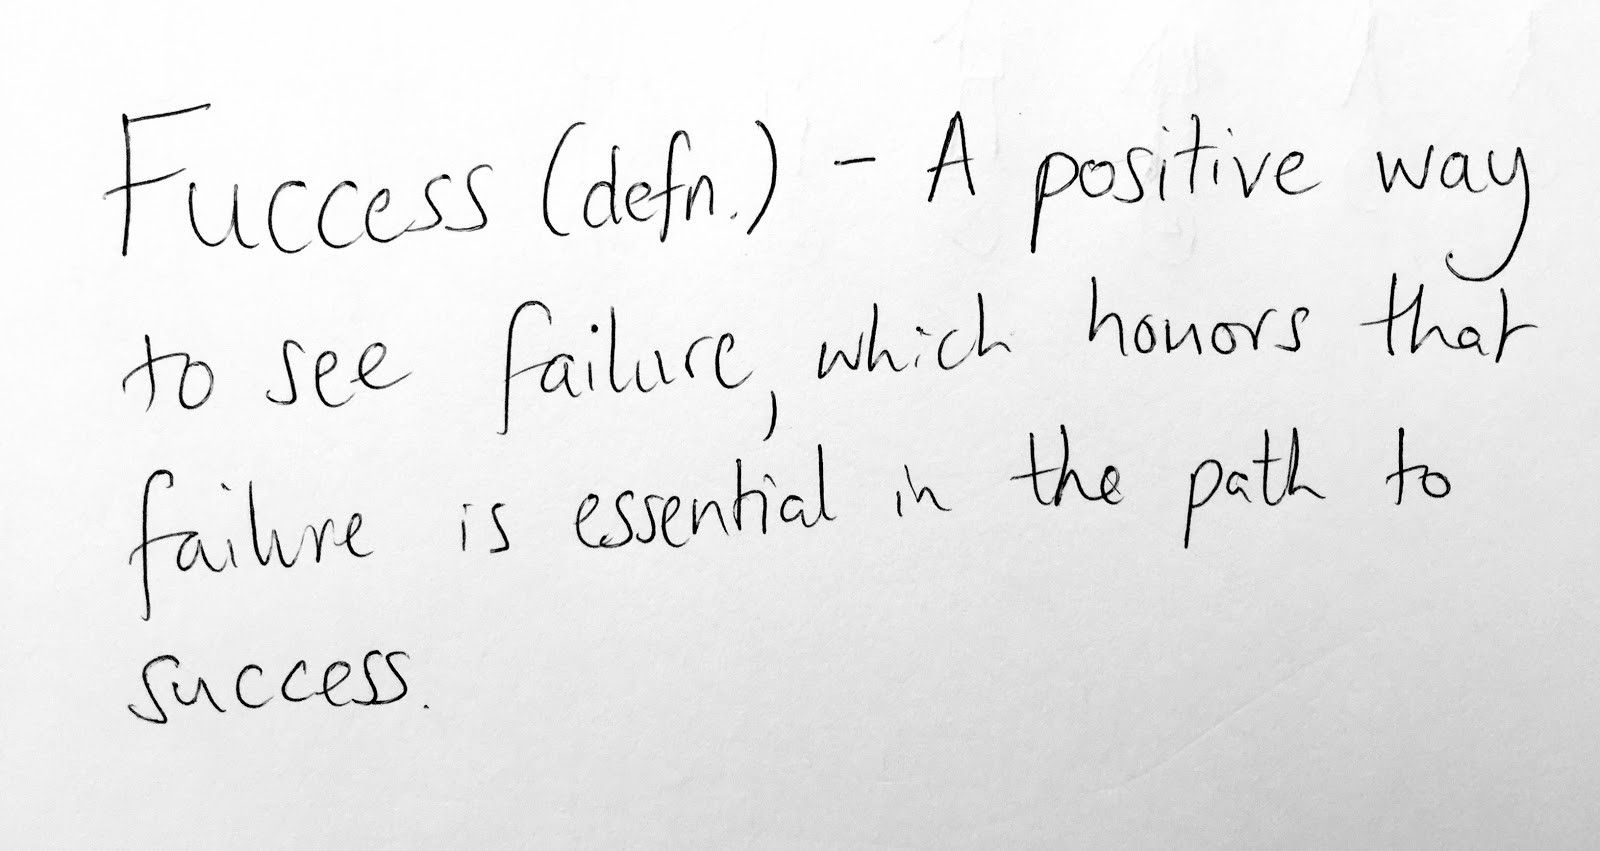 Fuccess (defn.) - A positive way
to see failure, which honors that
failure is essential in the path to
success.